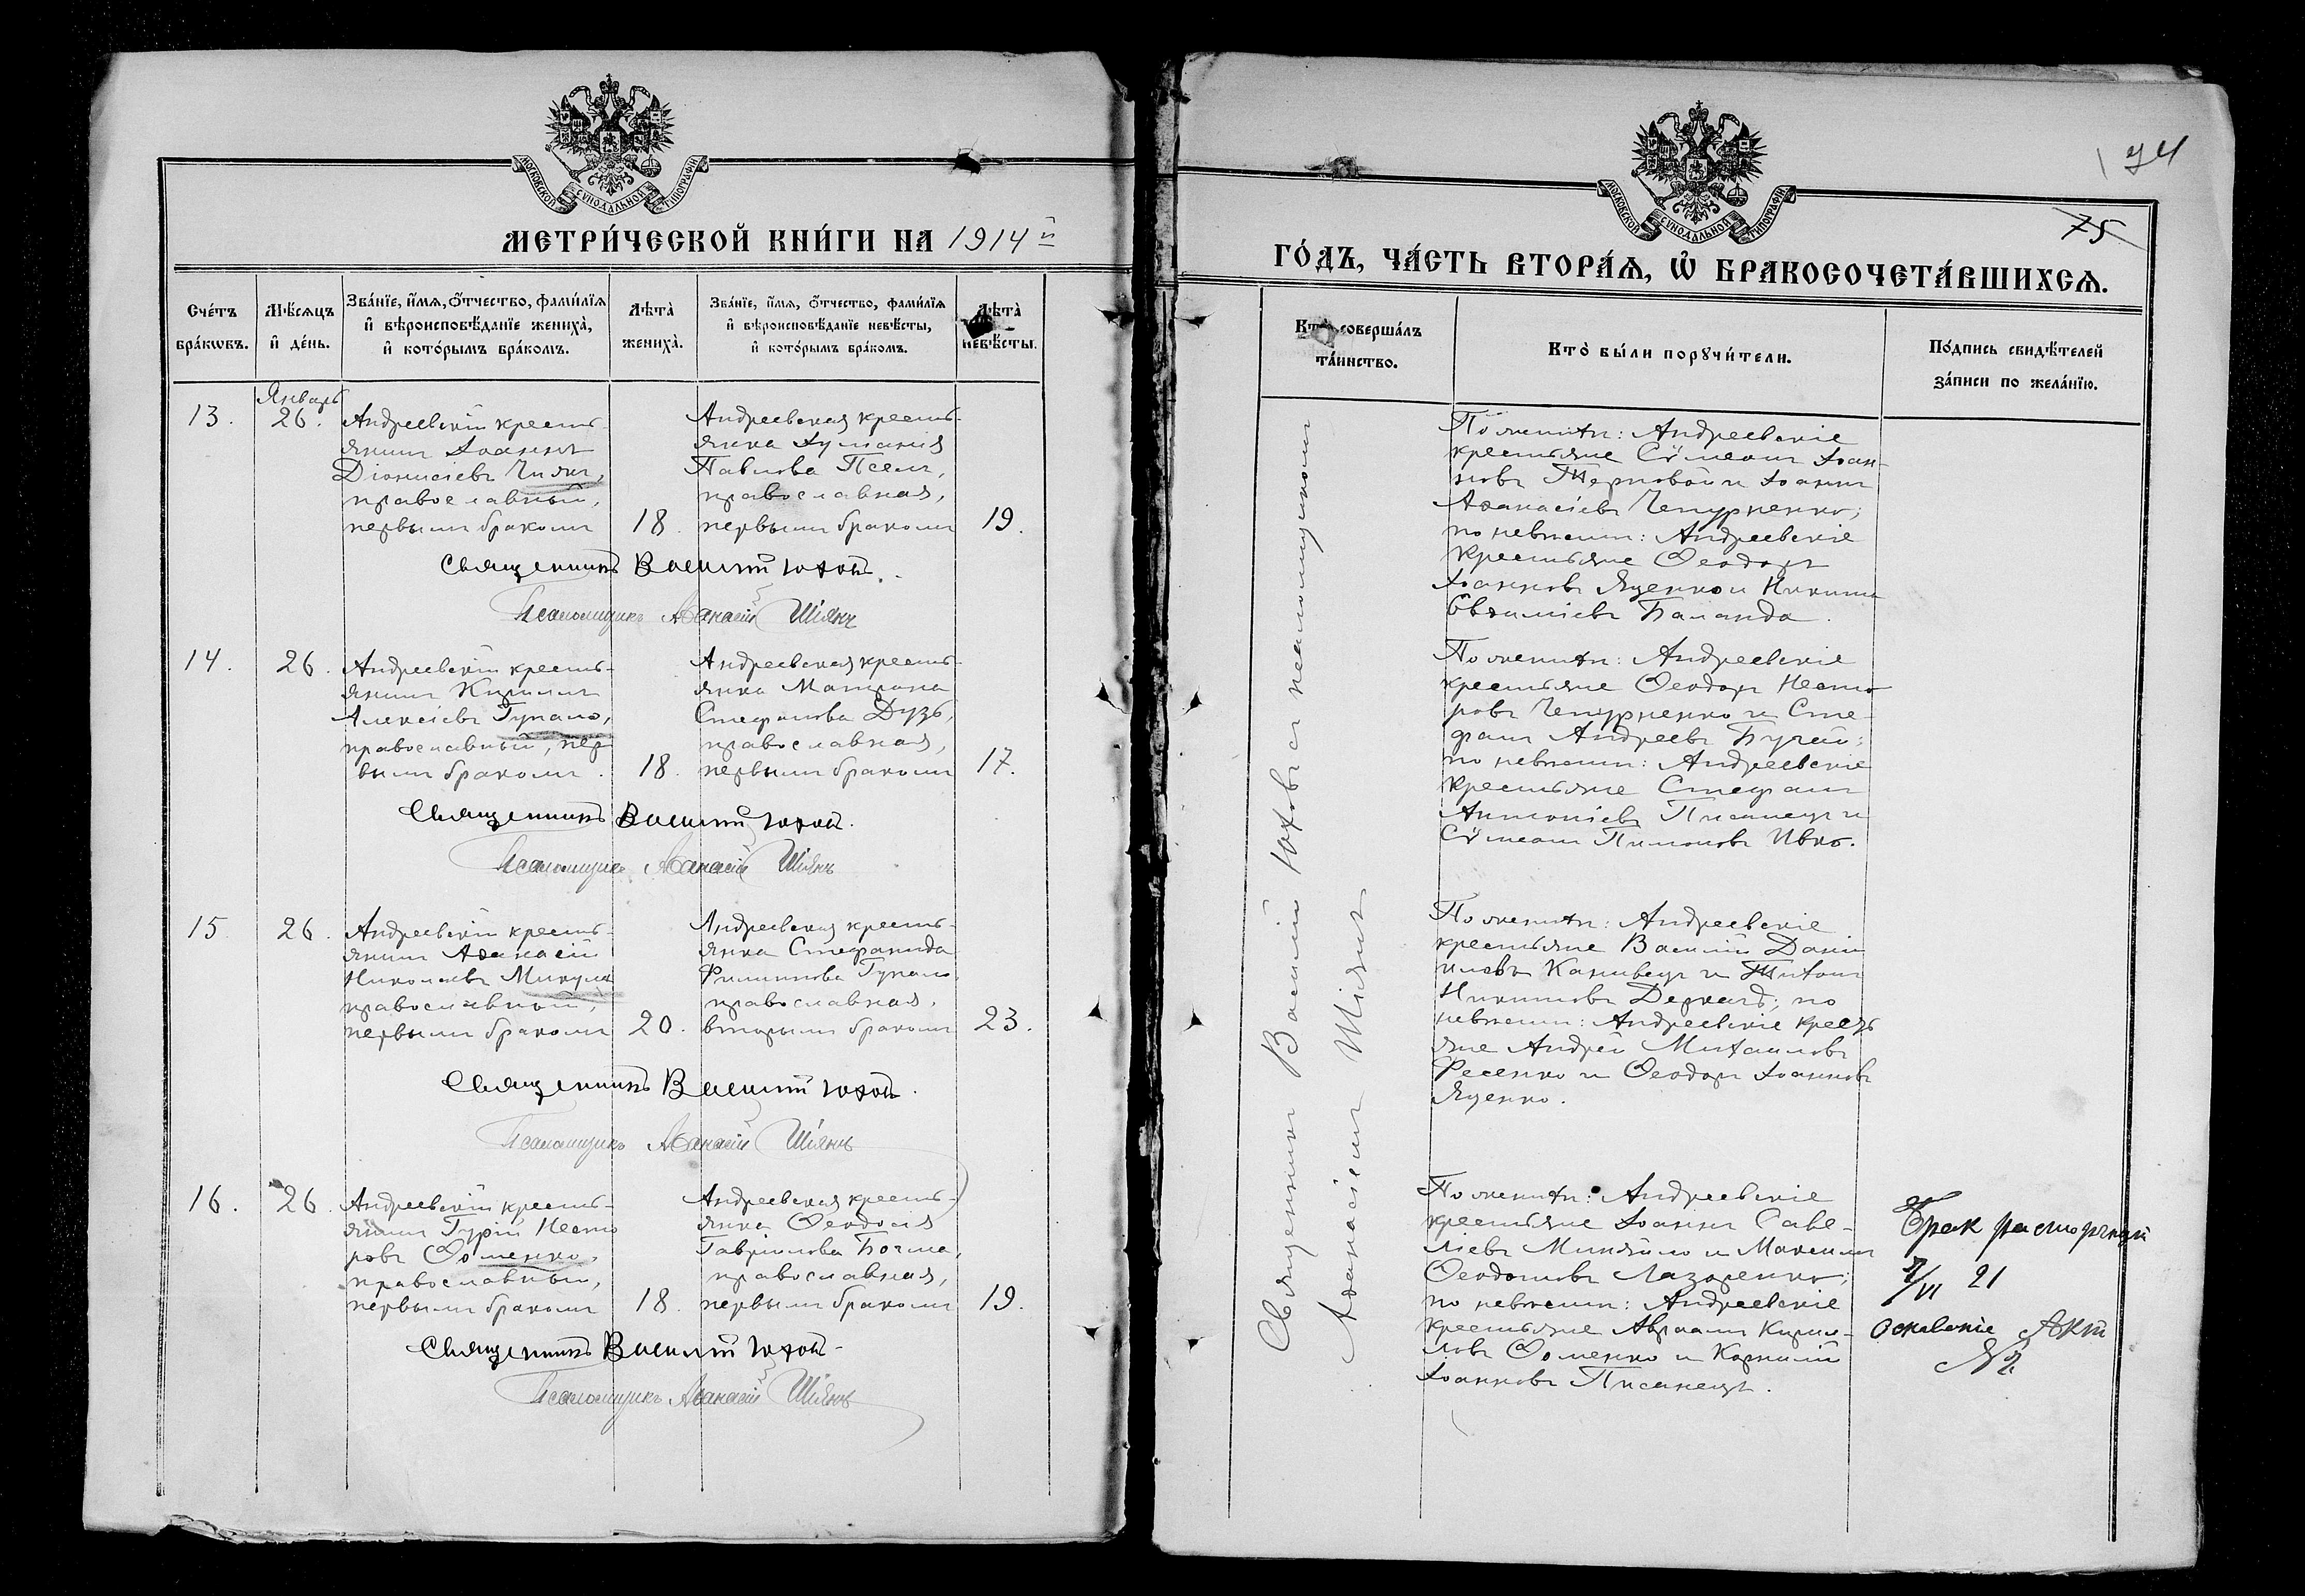 МОСКОВСКОЙ СѴНОДАЛЬНОЙ ТИПОГРАФІИ
МЕТРИ́ЧЕСКОЙ КНИ́ГИ НА 1914 й
Сче́тъ бра́кѡвъ.
Мѣ́сяцъ и҆ де́нь.
Зва́нїе, и҆́мя, ѻ҆́тчество, фами́лїя
и҆ вѣроисповѣ́данїе жениха̀,
и҆ кото́рымъ бра́комъ.
Лѣта̀ жениха̀.
Зва́нїе, и҆́мя, ѻ҆́тчество, фами́лїя
и҆ вѣроисповѣ́данїе невѣ́сты,
и҆ кото́рымъ бра́комъ.
Лѣта̀ невѣ́сты.
Январь
13. 26.
Андреевскій кресть-
янинъ Іоаннъ
Діонисіевъ Чиякъ,
православный,
первымъ бракомъ 18.
Андреевская кресть-
янка
Павлова Псёлъ,
православная,
первымъ бракомъ 19.
Священникъ Василій Юховъ.
Псаломщикъ Аѳанасій Шіянъ
14. 26.
Андреевскій кресть-
янинъ Кириллъ
Алексіевъ Гупало,
православный, пер
вымъ бракомъ. 18.
Андреевская кресть-
янка Матрона
Стефанова Дузь,
православная,
первымъ бракомъ 17.
Священникъ Василій Юховъ.
Псаломщикъ Аѳанасій Шіянъ
15 26.
Андреевскій кресть-
янинъ Аѳанасій
Николаевъ Микула
православный,
первымъ бракомъ 20.
Андреевская кресть-
янка Стефанида
Филиппова Гупало
православная,
вторымъ бракомъ 23.
Священникъ Василій Юховъ.
Псаломщикъ Аѳанасій Шіянъ
16. 26.
Андреевскій кресть-
янинъ Гурій Несто
ровъ Ѳоменко,
православный,
первымъ бракомъ 18.
Андреевская кресть-
янка Ѳеодосія
Гавріилова Бочма,
православная,
первымъ бракомъ 19.
Священникъ Василій Юховъ
Псаломщикъ Аѳанасій Шіянъ
74
75
МОСКОВСКОЙ СѴНОДАЛЬНОЙ ТИПОГРАФІИ
ГО́ДЪ, ЧА́СТЬ ВТОРА́Я, Ѡ҆ БРАКОСОЧЕТА́ВШИХСЯ.
Кто̀ соверша́лъ та́инство.
Кто̀ бы́ли порꙋчи́тели.
По́дпись свидѣ́телей
за́писи по жела́нїю.
Священникъ Василій Юховъ съ псаломщикомъ
Аѳанасіемъ Шіянъ
По женихѣ: Андреевскіе
крестьяне Сѷмеонъ Іоан-
новъ Терновой и Іоаннъ
Аѳанасіевъ Чепурненко;
по невѣстѣ: Андреевскіе
крестьяне Ѳеодоръ
Іоанновъ Яценко и Никита
Евѳиміевъ Баланда.
По женихѣ: Андреевскіе
крестьяне Ѳеодоръ Несто
ровъ Чепурненко и Сте-
фанъ Андреевъ Бугай;
по невѣстѣ: Андреевскіе
крестьяне Стефанъ
Антоніевъ Писанецъ и
Сѷмеонъ Пимоновъ Ивко.
По женихѣ: Андреевскіе
крестьяне Василій Дані
иловъ Канивецъ и Титъ
Никитовъ Деркачъ; по
невѣстѣ: Андреевскіе кресть
яне Андрей Михаиловъ
Фесенко и Ѳеодоръ Іоанновъ
Яценко.
По женихѣ: Андреевскіе
крестьяне Іоаннъ Саве-
ліевъ Миняйло и Максимъ
Ѳеодотовъ Лазоренко;
по невѣстѣ: Андреевскіе
крестьяне Авраамъ Кирил-
ловъ Ѳоменко и Корнилій
Іоанновъ Писанецъ.
Брак расторгнут
7/VI 21
Акт
№ 2